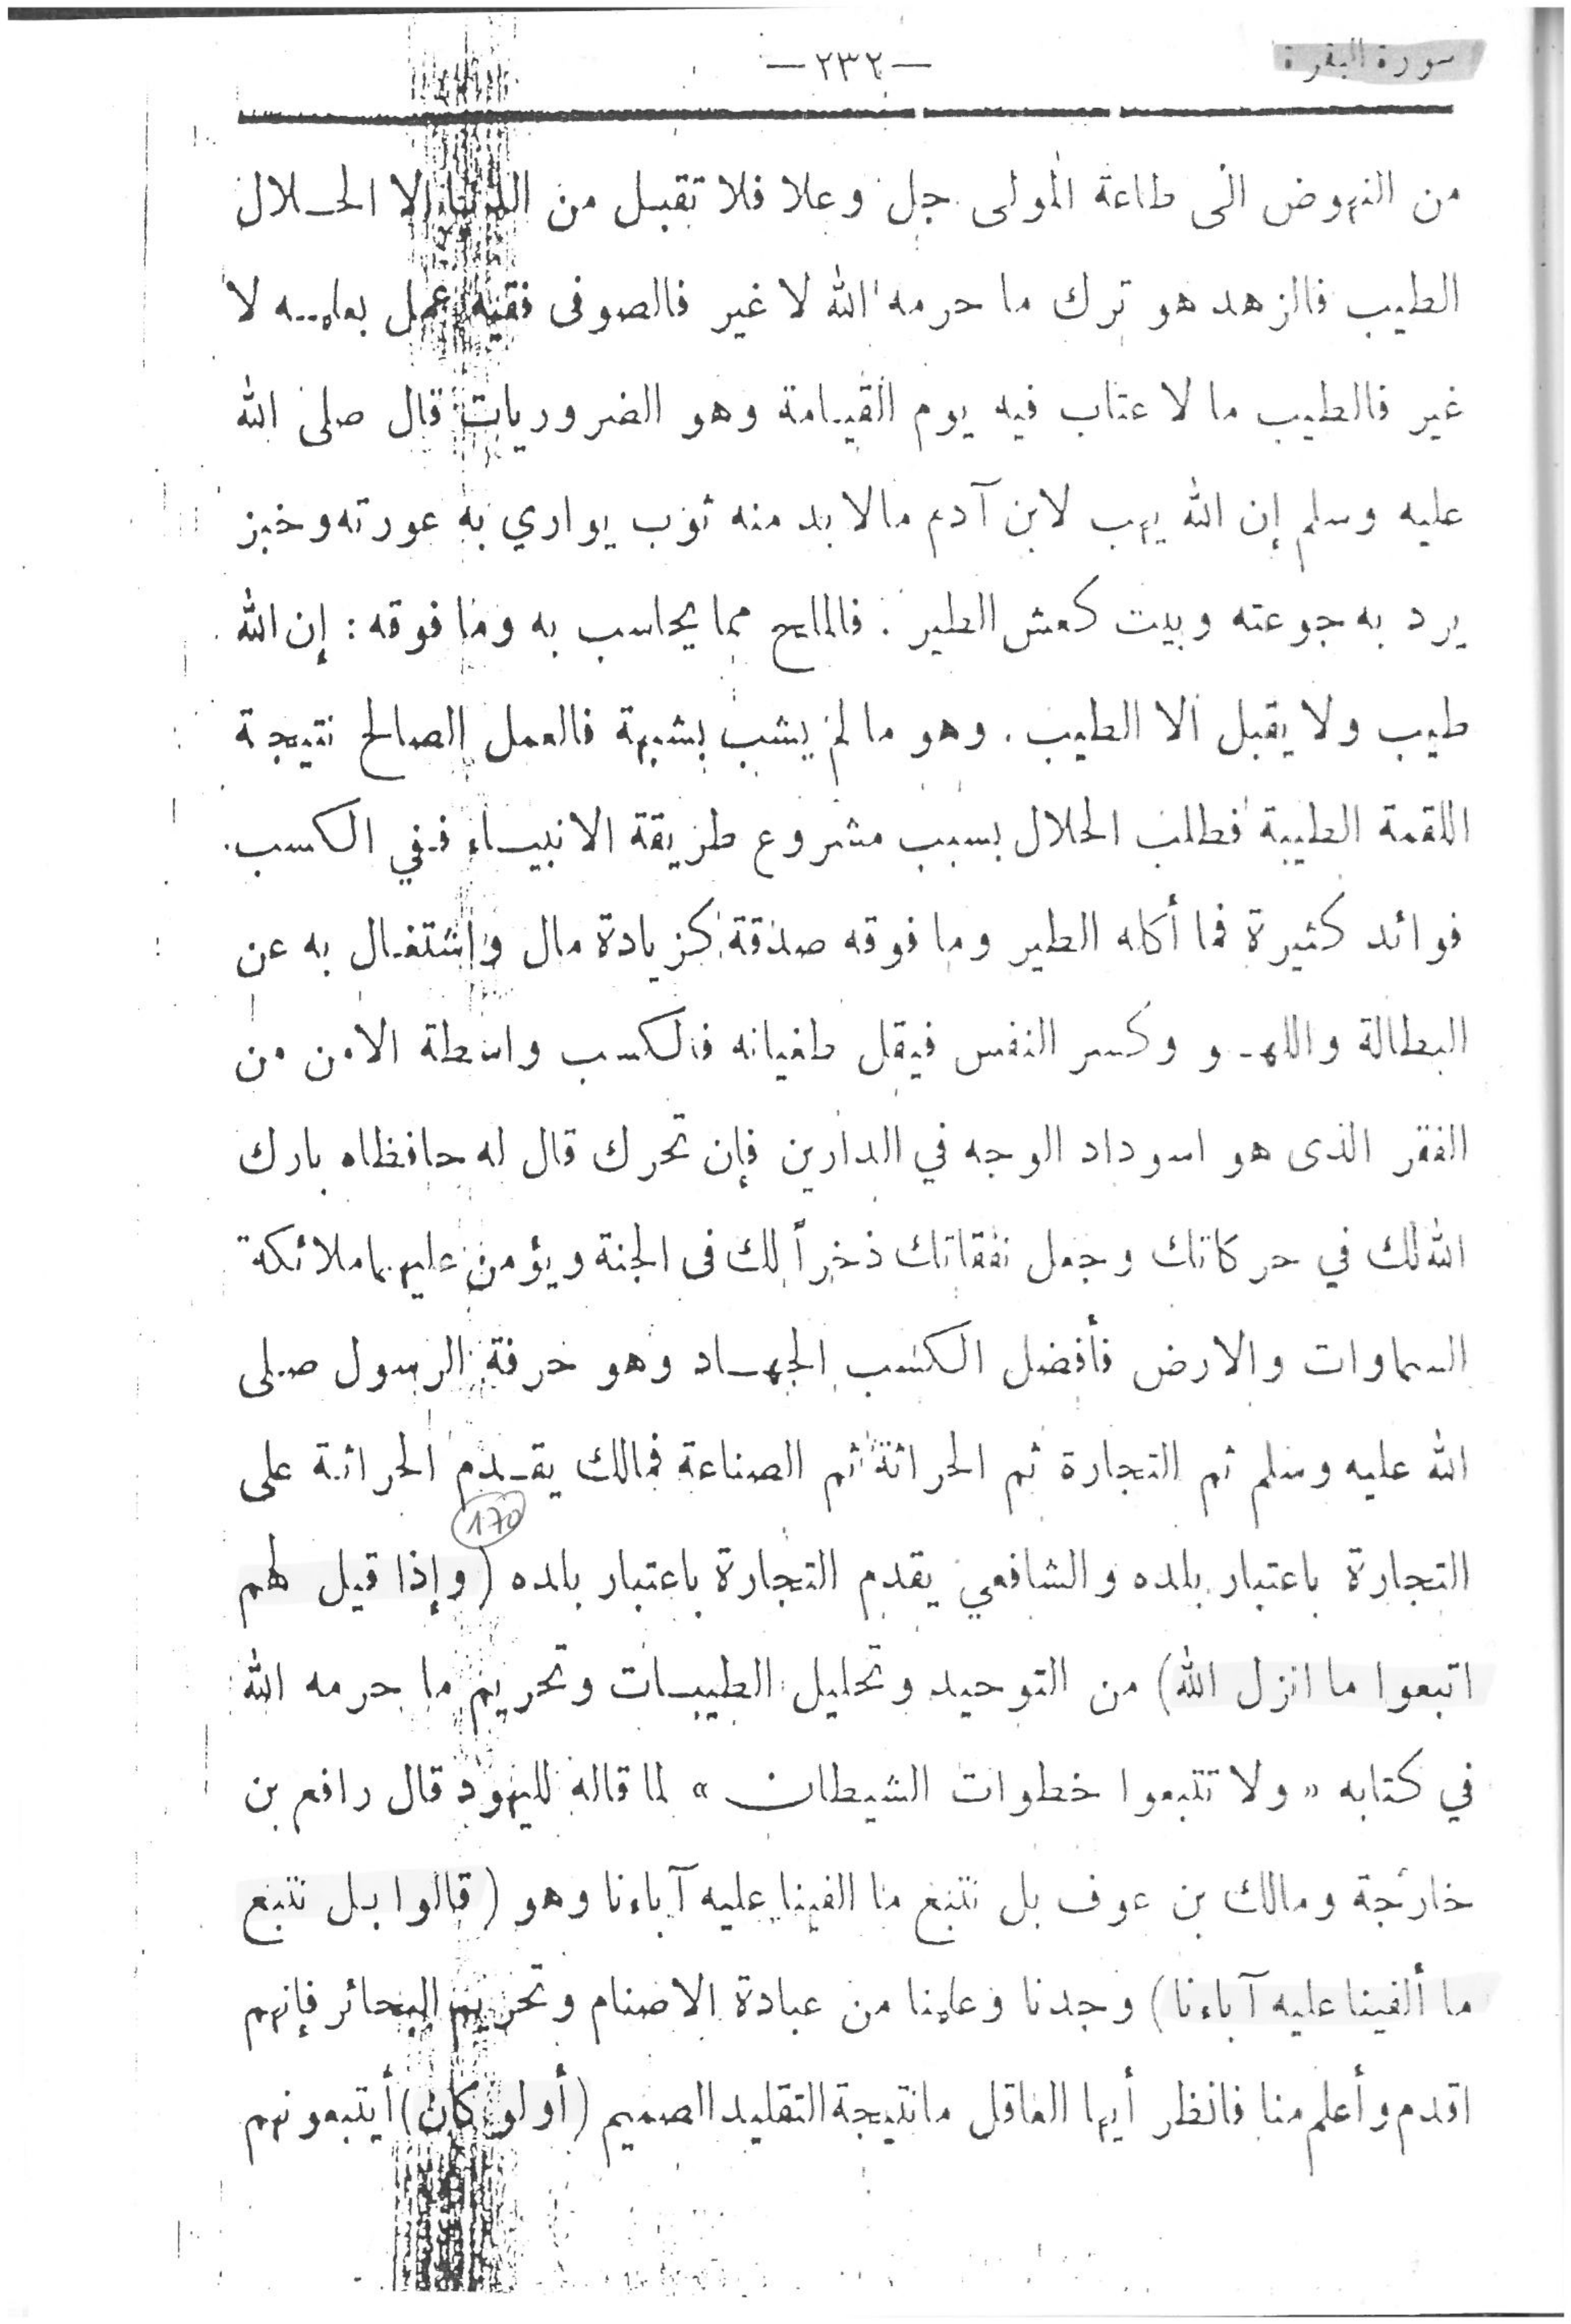 سورة البقرة
— ٢٣٢ —
من النهوض الى طاعة المولى جل وعلا فلا تقبل من الا الحلال
الطيب فالزهد هو ترك ما حرمه الله لا غير فالصوفى فقيه عمل بعلمه لا
غير فالطيب ما لا عتاب فيه يوم القيامة وهو الضروريات قال صلى الله
عليه وسلم إن الله يهب لابن آدم مالا بد منه ثوب يواري به عورته وخبز
يرد به جوعته وبيت كعش الطير . فالملح مما يحاسب به وما فوقه : إن الله
طيب ولا يقبل الا الطيب . وهو ما لم يشب بشبهة فالعمل الصالح نتيجة
اللقمة الطيبة فطلب الحلال بسبب مشروع طريقة الانبياء ففي الكسب
فوائد كثيرة فما أكله الطير وما فوقه صدقة كزيادة مال واشتغال به عن
البطالة واللهو وكسر النفس فيقل طغيانه فالكسب واسطة الامن من
الفقر الذى هو اسوداد الوجه في الدارين فإن تحرك قال له حافظاه بارك
الله لك في حركاتك وجعل نفقاتك ذخراً لك فى الجنة ويؤمن عليهما ملائكة
السماوات والارض فأفضل الكسب الجهاد وهو حرفة الرسول صلى
الله عليه وسلم ثم التجارة ثم الحراثة ثم الصناعة فمالك يقدم الحراثة على
170
التجارة باعتبار بلده والشافعي يقدم التجارة باعتبار بلده (وإذا قيل لهم
اتبعوا ما انزل الله) من التوحيد وتحليل الطيبات وتحريم ما حرمه الله
في كتابه «ولا تتبعوا خطوات الشيطان» لما قاله لليهود قال رافع بن
خارجة ومالك بن عوف بل نتبع ما الفينا عليه آباءنا وهو (قالوا بل نتبع
ما ألفينا عليه آباءنا) وجدنا وعلمنا من عبادة الاصنام وتحريم البحائر فإنهم
اقدم وأعلم منا فانظر أيها العاقل ما نتيجة التقليد الصميم (أو لو كان) أيتبعونهم